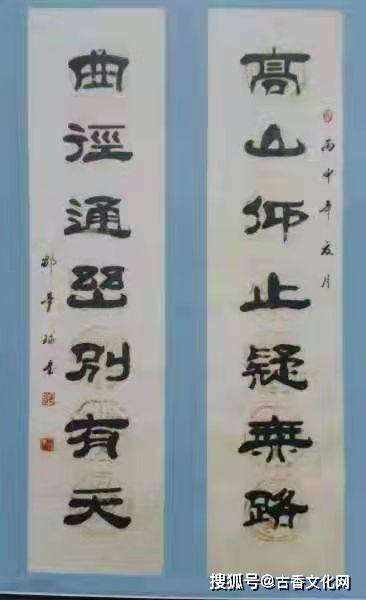 髙山仰止疑無路
丙申年夏月
曲徑通幽別有天
搜狐号@古香文化网